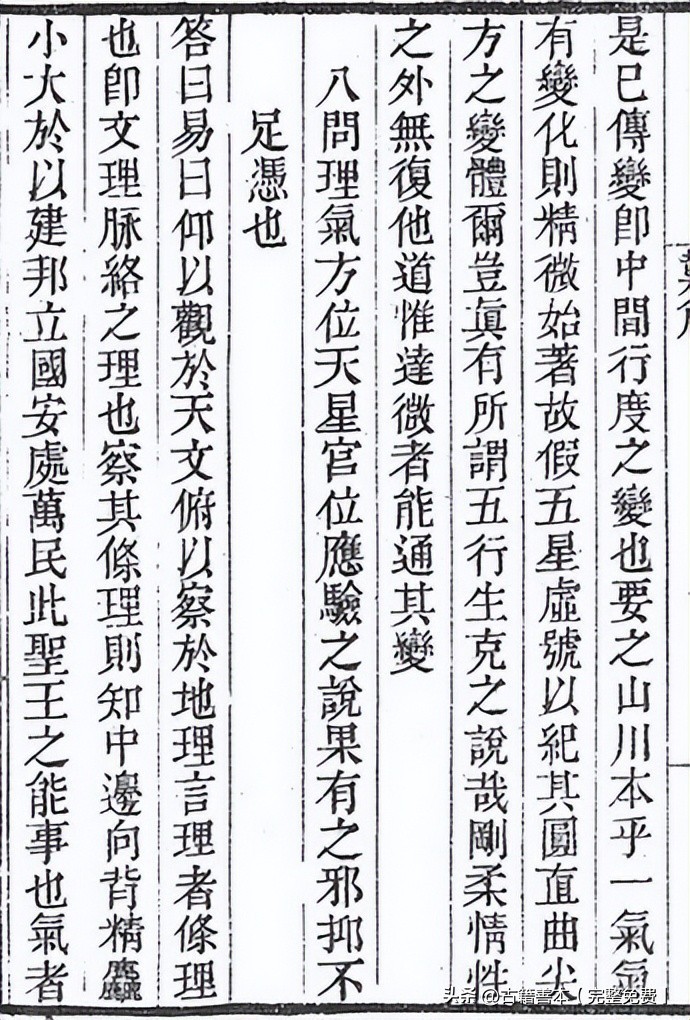 是已傳變卽中間行度之變也要之山川本乎一氣氣
有變化則精微始著故假五星虛號以紀其圓直曲尖
方之變體爾豈眞有所謂五行生克之說哉剛柔情性
之外無復他道惟達微者能通其變
八問理氣方位天星宮位應驗之說果有之邪抑不
足憑也
答曰易曰仰以觀於天文俯以察於地理言理者條理
也卽文理脈絡之理也察其條理則知中邊向背精麤
小大於以建邦立國安處萬民此聖王之能事也氣者
头条 @古籍書本（完整免费）